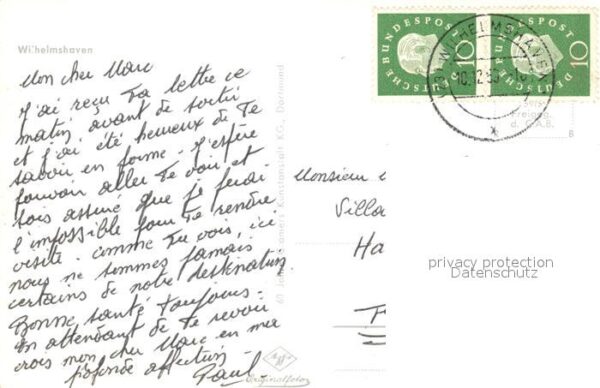 Wilhelmshaven
Mon cher Marc
J'ai reçu ta lettre ce
matin, avant de sortir
et j'ai été heureux de te
savoir en forme. J'espère
pouvoir aller te voir et
sois assuré que je ferai
l'impossible pour te rendre
visite. comme tu vois, ici
nous ne sommes jamais
certains de notre destination
Bonne santé toujours-
en attendant de te revoir
crois mon cher Marc en ma
profonde affection
Paul-
Kunstanstalt KG., Dortmund
Originalfoto
DEUTSCHE BUNDESPOST
10
DEUTSCHE BUNDESPOST
10
WILHELMSHAVEN
Freigeg.
8
Monsieur
Villa
Ha
F
privacy protection
Datenschutz